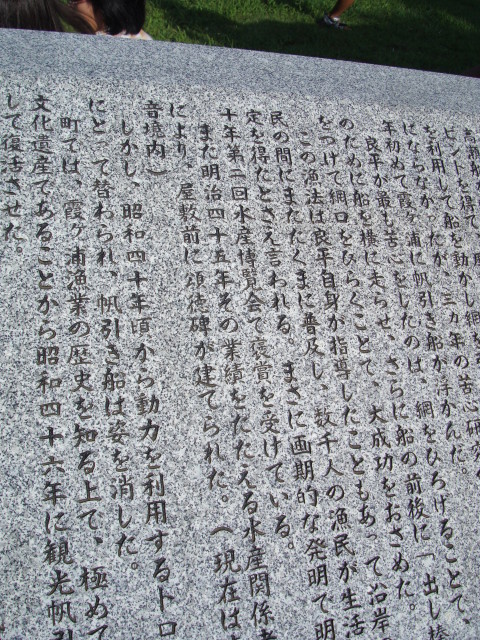 ヒントを得て
を利用して船を動かし網を 三ヵ年の苦心研究
にならなかったが、三ヵ年の苦心研究
年初めて霞ヶ浦に帆引き船が浮かんだ。
良平が最も苦心をしたのは、網をひろげることで、
のために船を横に走らせ、さらに船の前後に「出し棒
をつけて網口をひらくことで、大成功をおさめた。
この漁法は良平自身が指導したこともあって沿岸
民の間にまたたくまに普及し、数千人の漁民が生活
定を得たとさえ言われる。まさに画期的な発明で明
十年第二回水産博覧会で褒賞を受けている。
また明治四十五年その業績をたたえる水産関係者
により、屋敷前に頌徳碑が建てられた。（現在は
音境内）
しかし、昭和四十年頃から動力を利用するトロ
にとって替わられ、帆引き船は姿を消した。
町では、霞ヶ浦漁業の歴史を知る上で、極めて
文化遺産であることから昭和四十六年に観光帆引
して復活させた。